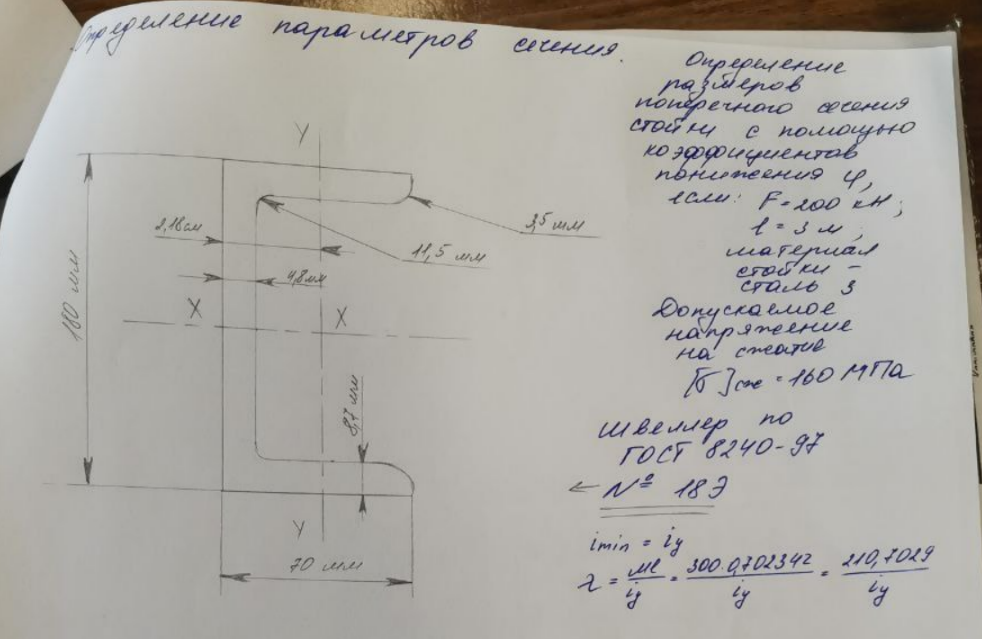 Определение параметров сечения.
Определение
размеров
поперечного сечения
стойки с помощью
коэффициентов
понижения φ,
если: F=200 кН;
l=3 м;
материал
стойки –
сталь 3
Допускаемое
напряжение
на сжатие
[σ]сж=160 МПа
Швеллер по
ГОСТ 8240-97
← № 18Э
imin = iy
λ = μl/iy = 300·0,702342/iy = 210,7029/iy
Y
3,5 мм
2,18см
11,5 мм
4,8мм
X X
180 мм
8,7 мм
Y
70 мм